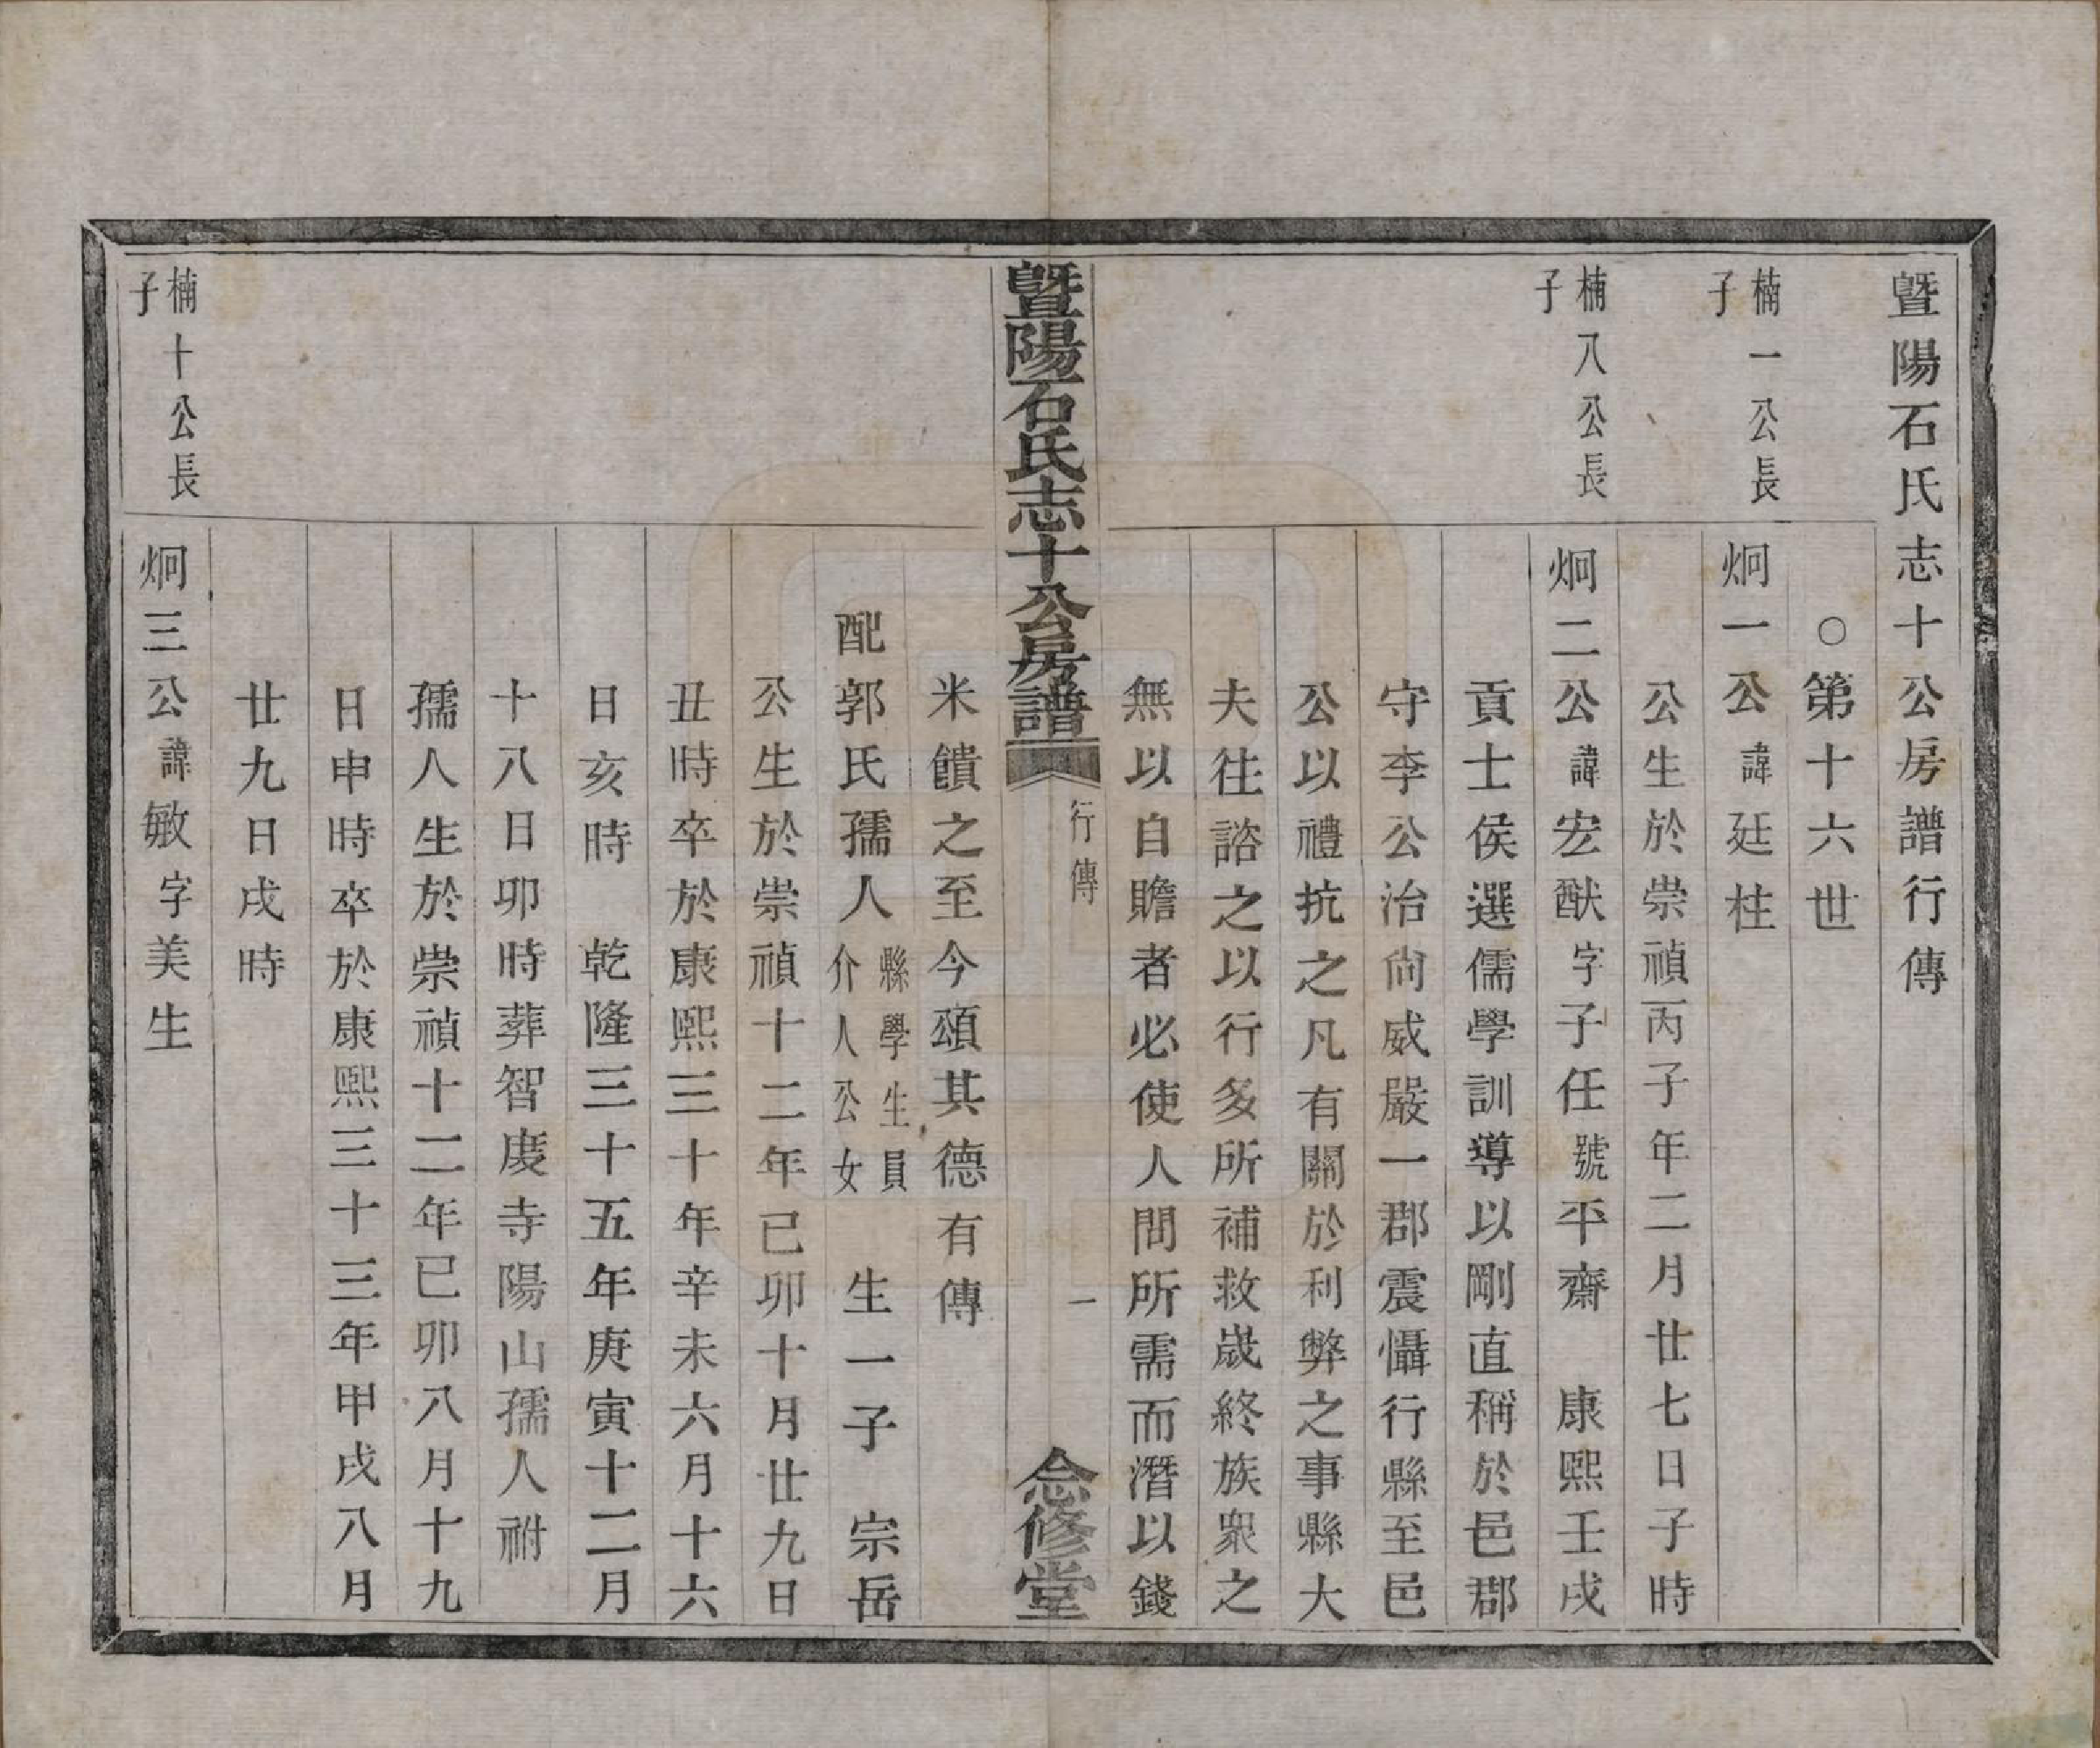 暨陽石氏志十公房譜行傳
○第十六世
楠一公長子
炯一公諱廷柱
公生於崇禎丙子年二月廿七日子時
楠八公長子
炯二公諱宏猷字子任號平齋　康熙壬戌
貢士侯選儒學訓導以剛直稱於邑郡
守李公治尙威嚴一郡震懾行縣至邑
公以禮抗之凡有關於利弊之事縣大
夫往諮之以行多所補救歲終族衆之
無以自贍者必使人問所需而潛以錢
暨陽石氏志十公房譜
行傳
一
念修堂
米饋之至今頌其德有傳
配郭氏孺人縣學生員介人公女　生一子　宗岳
公生於崇禎十二年已卯十月廿九日
丑時卒於康熙三十年辛未六月十六
日亥時　乾隆三十五年庚寅十二月
十八日卯時葬智度寺陽山孺人祔
孺人生於崇禎十二年已卯八月十九
日申時卒於康熙三十三年甲戌八月
廿九日戌時
楠十公長子
炯三公諱敏字美生